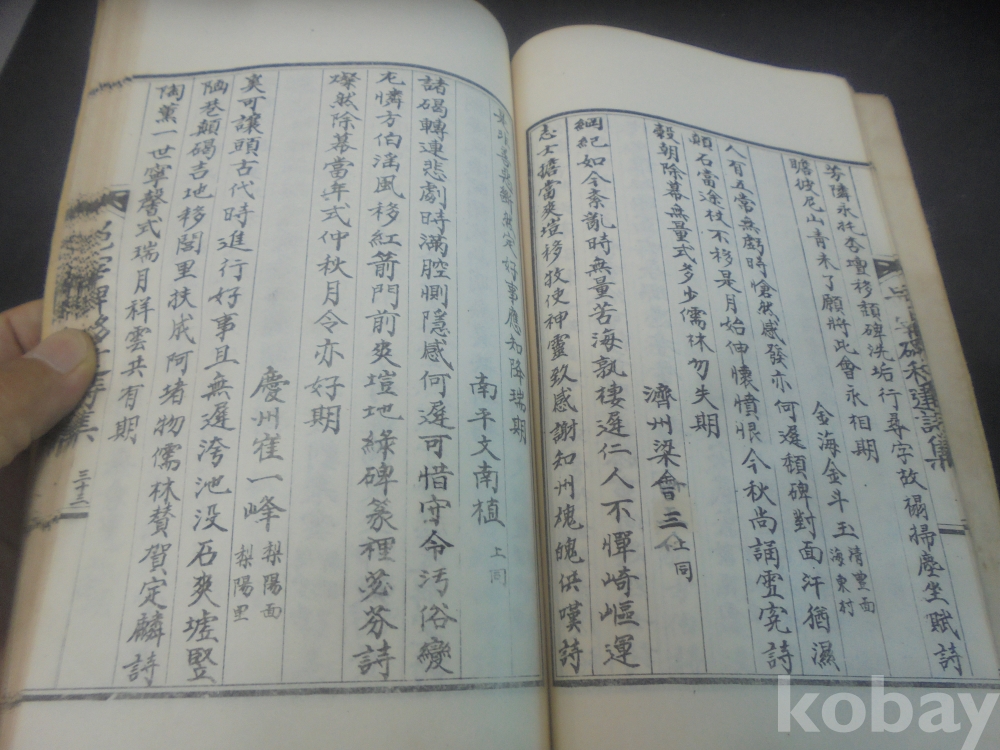 芳隣永托杏壇移顏碑洗垢行尋字故榻掃塵坐賦詩
瞻彼尼山青未了願將此會永相期
金海金斗玉 清里面 海東村
人皆五常無虧時愴然感發亦何遲頹碑對面汗猶濕
顛石當途杖不移是月始伸懷憤恨今秋尚誦靈完詩
毅朝除幕無量式多少儒林勿失期
濟州梁會三 上同
綱紀如今紊亂時無量苦海孰棲遲仁人不憚崎嶇運
志士擔當爽塏移牧使神靈致感謝知州塊魄供嘆詩
好事應知降瑞期
南平文南植 上同
諸碣轉連悲劇時滿腔惻隱感何遲可惜守令汚俗變
尤憐方伯滛風移紅箭門前爽塏地綠碑篆裡苾芬詩
燦然除幕當年式仲秋月令亦好期
慶州崔一峰 梨陽面 梨陽里
奚可讓頭古代時進行好事且無遲洿池没石爽墟竪
陋巷顛碣吉地移閭里扶成阿堵物儒林贊賀定麟詩
陶薰一世寧馨式瑞月祥雲共有期
三十三
kobay